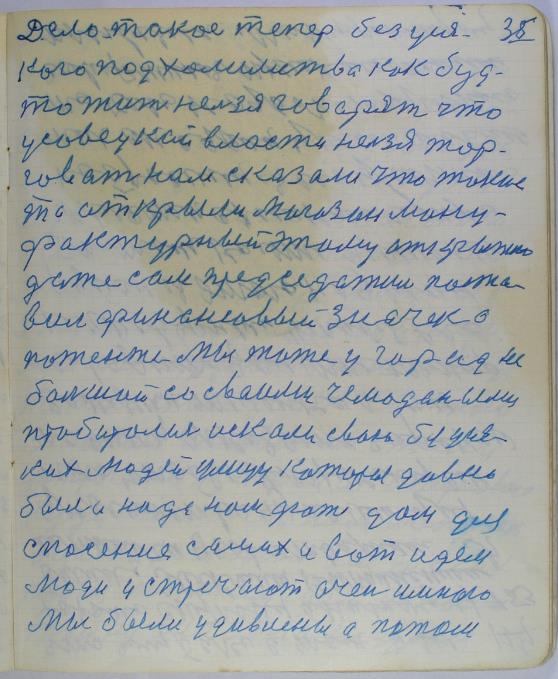 Дело такое тепер без уся- 38
кого подхолимства как буд-
то жит нелзя говорят что
усовецкой власти нелзя тор-
говат нам сказали что такие
то открыли магазан ману-
фактурный этому открытию
даже сам председатил поста
вил финансовый значек о
потенте Мы тоже у горад не
болшой со своими чемоданыими
искали свою
ких людей улицу которые давно
были наде дом для
спосение самих и вот идем
люди устречают очен много
Мы были удивлены а потом